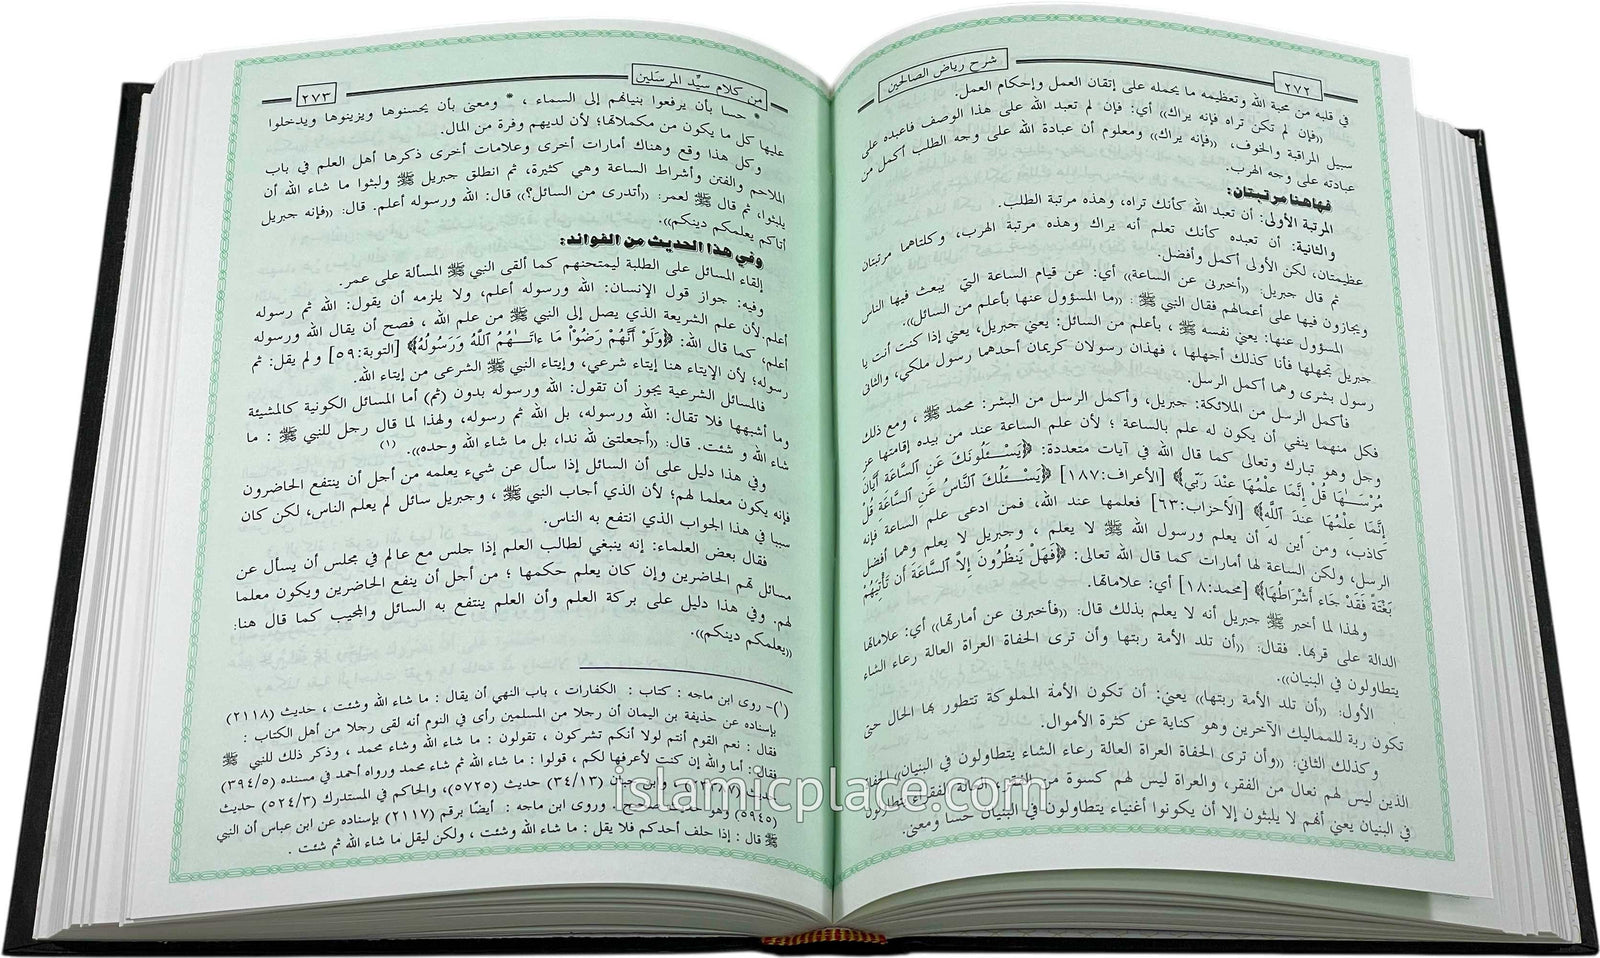 ٢٧٢
شرح رياض الصالحين
في قلبه من محبة الله وتعظيمه ما يحمله على إتقان العمل وإحكام العمل.
((فإن لم تكن تراه فإنه يراك)) أي: فإن لم تعبد الله على هذا الوصف فاعبده على
سبيل المراقبة والخوف، ((فإنه يراك)) ومعلوم أن عبادة الله على وجه الطلب أكمل من
عبادته على وجه الهرب.
فهاهنا مرتبتان:
المرتبة الأولى: أن تعبد الله كأنك تراه، وهذه مرتبة الطلب.
والثانية: أن تعبده كأنك تعلم أنه يراك وهذه مرتبة الهرب، وكلتاهما مرتبتان
عظيمتان، لكن الأولى أكمل وأفضل.
ثم قال جبريل: ((أخبرني عن الساعة)) أي: عن قيام الساعة التي يبعث فيها الناس
ويجازون فيها على أعمالهم فقال النبي ﷺ : ((ما المسؤول عنها بأعلم من السائل)).
المسؤول عنها: يعني نفسه ﷺ ، بأعلم من السائل: يعني جبريل، يعني إذا كنت أنت يا
جبريل تجهلها فأنا كذلك أجهلها ، فهذان رسولان كريمان أحدهما رسول ملكي، والثاني
رسول بشري وهما أكمل الرسل.
فأكمل الرسل من الملائكة: جبريل، وأكمل الرسل من البشر: محمد ﷺ ، ومع ذلك
فكل منهما ينفي أن يكون له علم بالساعة ؛ لأن علم الساعة عند من بيده إقامتها عز
وجل وهو تبارك وتعالى كما قال الله في آيات متعددة: ﴿يَسْـَٔلُونَكَ عَنِ ٱلسَّاعَةِ أَيَّانَ
مُرْسَىٰهَا قُلْ إِنَّمَا عِلْمُهَا عِندَ رَبِّى﴾ [الأعراف:١٨٧] ﴿يَسْـَٔلُكَ ٱلنَّاسُ عَنِ ٱلسَّاعَةِ قُلْ
إِنَّمَا عِلْمُهَا عِندَ ٱللَّهِ﴾ [الأحزاب:٦٣] فعلمها عند الله، فمن ادعى علم الساعة فإنه
كاذب، ومن أين له أن يعلم ورسول الله ﷺ لا يعلم ، وجبريل لا يعلم وهما أفضل
الرسل، ولكن الساعة لها أمارات كما قال الله تعالى: ﴿فَهَلْ يَنظُرُونَ إِلَّا ٱلسَّاعَةَ أَن تَأْتِيَهُم
بَغْتَةً فَقَدْ جَاءَ أَشْرَاطُهَا﴾ [محمد:١٨] أي: علاماتها.
ولهذا لما أخبر ﷺ جبريل أنه لا يعلم بذلك قال: ((فأخبرني عن أماراتها)) أي: علاماتها
الدالة على قربها. فقال: ((أن تلد الأمة ربتها وأن ترى الحفاة العراة العالة رعاء الشاء
يتطاولون في البنيان)).
الأول: ((أن تلد الأمة ربتها)) يعني: أن تكون الأمة المملوكة تتطور بها الحال حتى
تكون ربة للمماليك الآخرين وهو كناية عن كثرة الأموال.
وكذلك الثاني: ((وأن ترى الحفاة العراة العالة رعاء الشاء يتطاولون في البنيان)) الحفاة
الذين ليس لهم نعال من الفقر، والعراة ليس لهم كسوة من الفقر، والعالة الفقراء يتطاولون
في البنيان يعني أنهم لا يلبثون إلا أن يكونوا أغنياء يتطاولون في البنيان حسا ومعنى.
من كلام سيِّد المرسَلين
٢٧٣
* حسا بأن يرفعوا بنيانهم إلى السماء ، * ومعنى بأن يحسنوها ويزينوها ويدخلوا
عليها كل ما يكون من مكملاتها؛ لأن لديهم وفرة من المال.
وكل هذا وقع وهناك أمارات أخرى وعلامات أخرى ذكرها أهل العلم في باب
الملاحم والفتن وأشراط الساعة وهي كثيرة، ثم انطلق جبريل ﷺ ولبثوا ما شاء الله أن
يلبثوا، ثم قال ﷺ لعمر: ((أتدري من السائل؟)) قال: الله ورسوله أعلم. قال: ((فإنه جبريل
أتاكم يعلمكم دينكم)).
وفي هذا الحديث من الفوائد:
إلقاء المسائل على الطلبة ليمتحنهم كما ألقى النبي ﷺ المسألة على عمر.
وفيه: جواز قول الإنسان: الله ورسوله أعلم، ولا يلزمه أن يقول: الله ثم رسوله
أعلم.لأن علم الشريعة الذي يصل إلى النبي ﷺ من علم الله ، فصح أن يقال الله ورسوله
أعلم، كما قال الله: ﴿وَلَوْ أَنَّهُمْ رَضُوْاْ مَا ءَاتَىٰهُمُ ٱللَّهُ وَرَسُولُهُ﴾ [التوبة:٥٩] و لم يقل: ثم
رسوله؛ لأن الإيتاء هنا إيتاء شرعي، وإيتاء النبي ﷺ الشرعي من إيتاء الله.
فالمسائل الشرعية يجوز أن تقول: الله ورسوله بدون (ثم) أما المسائل الكونية كالمشيئة
وما أشبهها فلا تقال: الله ورسوله، بل الله ثم رسوله، ولهذا لما قال رجل للنبي ﷺ : ما
شاء الله و شئت. قال: ((أجعلتني لله ندا، بل ما شاء الله وحده)). (١)
وفي هذا دليل على أن السائل إذا سأل عن شيء يعلمه من أجل أن ينتفع الحاضرون
فإنه يكون معلما لهم؛ لأن الذي أجاب النبي ﷺ ، وجبريل سائل لم يعلم الناس، لكن كان
سببا في هذا الجواب الذي انتفع به الناس.
فقال بعض العلماء: إنه ينبغي لطالب العلم إذا جلس مع عالم في مجلس أن يسأل عن
مسائل تهم الحاضرين وإن كان يعلم حكمها ؛ من أجل أن ينفع الحاضرين ويكون معلما
لهم. وفي هذا دليل على بركة العلم وأن العلم ينتفع به السائل والمجيب كما قال هنا:
((يعلمكم دينكم)).
(١)- روى ابن ماجه : كتاب : الكفارات ، باب النهي أن يقال : ما شاء الله وشئت ، حديث (٢١١٨)
بإسناده عن حذيفة بن اليمان أن رجلا من المسلمين رأى في النوم أنه لقى رجلا من أهل الكتاب :
فقال : نعم القوم أنتم لولا أنكم تشركون ، تقولون : ما شاء الله وشاء محمد ، وذكر ذلك للنبي ﷺ
فقال: أما والله إن كنت لأعرفها لكم ، قولوا : ما شاء الله ثم شاء محمد ورواه أحمد في مسنده (٣٩٤/٥)
وابن حبان (٣٤/١٣) حديث (٥٧٢٥)، والحاكم في المستدرك (٥٢٤/٣) حديث
(٥٩٤٥) وهو حديث صحيح. وروى ابن ماجه : أيضًا برقم (٢١١٧) بإسناده عن ابن عباس أن النبي
ﷺ قال : إذا حلف أحدكم فلا يقل : ما شاء الله وشئت ، ولكن ليقل ما شاء الله ثم شئت .
islamicplace.com